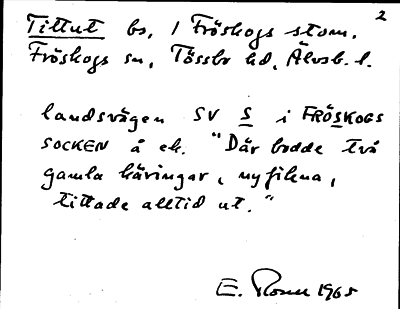 2
Tittut bs, 1 Fröskogs stom.
Fröskogs sn, Tössbo hd, Älvsb. l.
landsvägen SV S i FRÖSKOGS
SOCKEN å ek. "Där bodde två
gamla käringar, nyfikna,
tittade alltid ut."
E. 1965